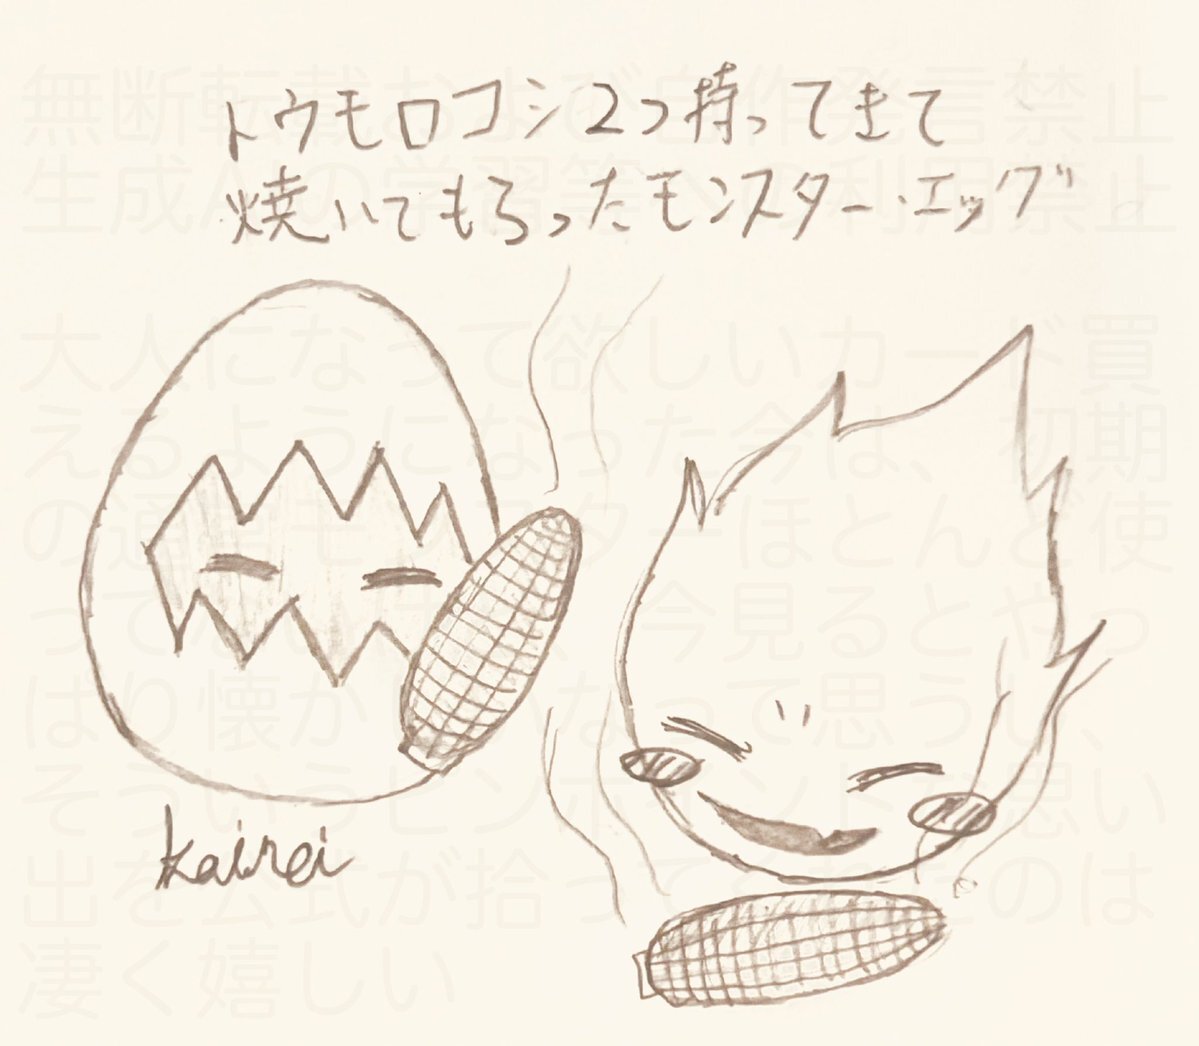 トウモロコシ2つ持ってきて
焼いてもらったモンスター・エッグ
無断転載および自作発言禁止
生成AIの学習等への利用禁止
大人になって欲しいカード買
えるようになった今は、初期
の通常モンスターほとんど使
ってないけど、今見るとやっ
ぱり懐かしくなって思うし、
そういうピンポイントな思い
出を公式が拾ってくれたのは
凄く嬉しい
kairei